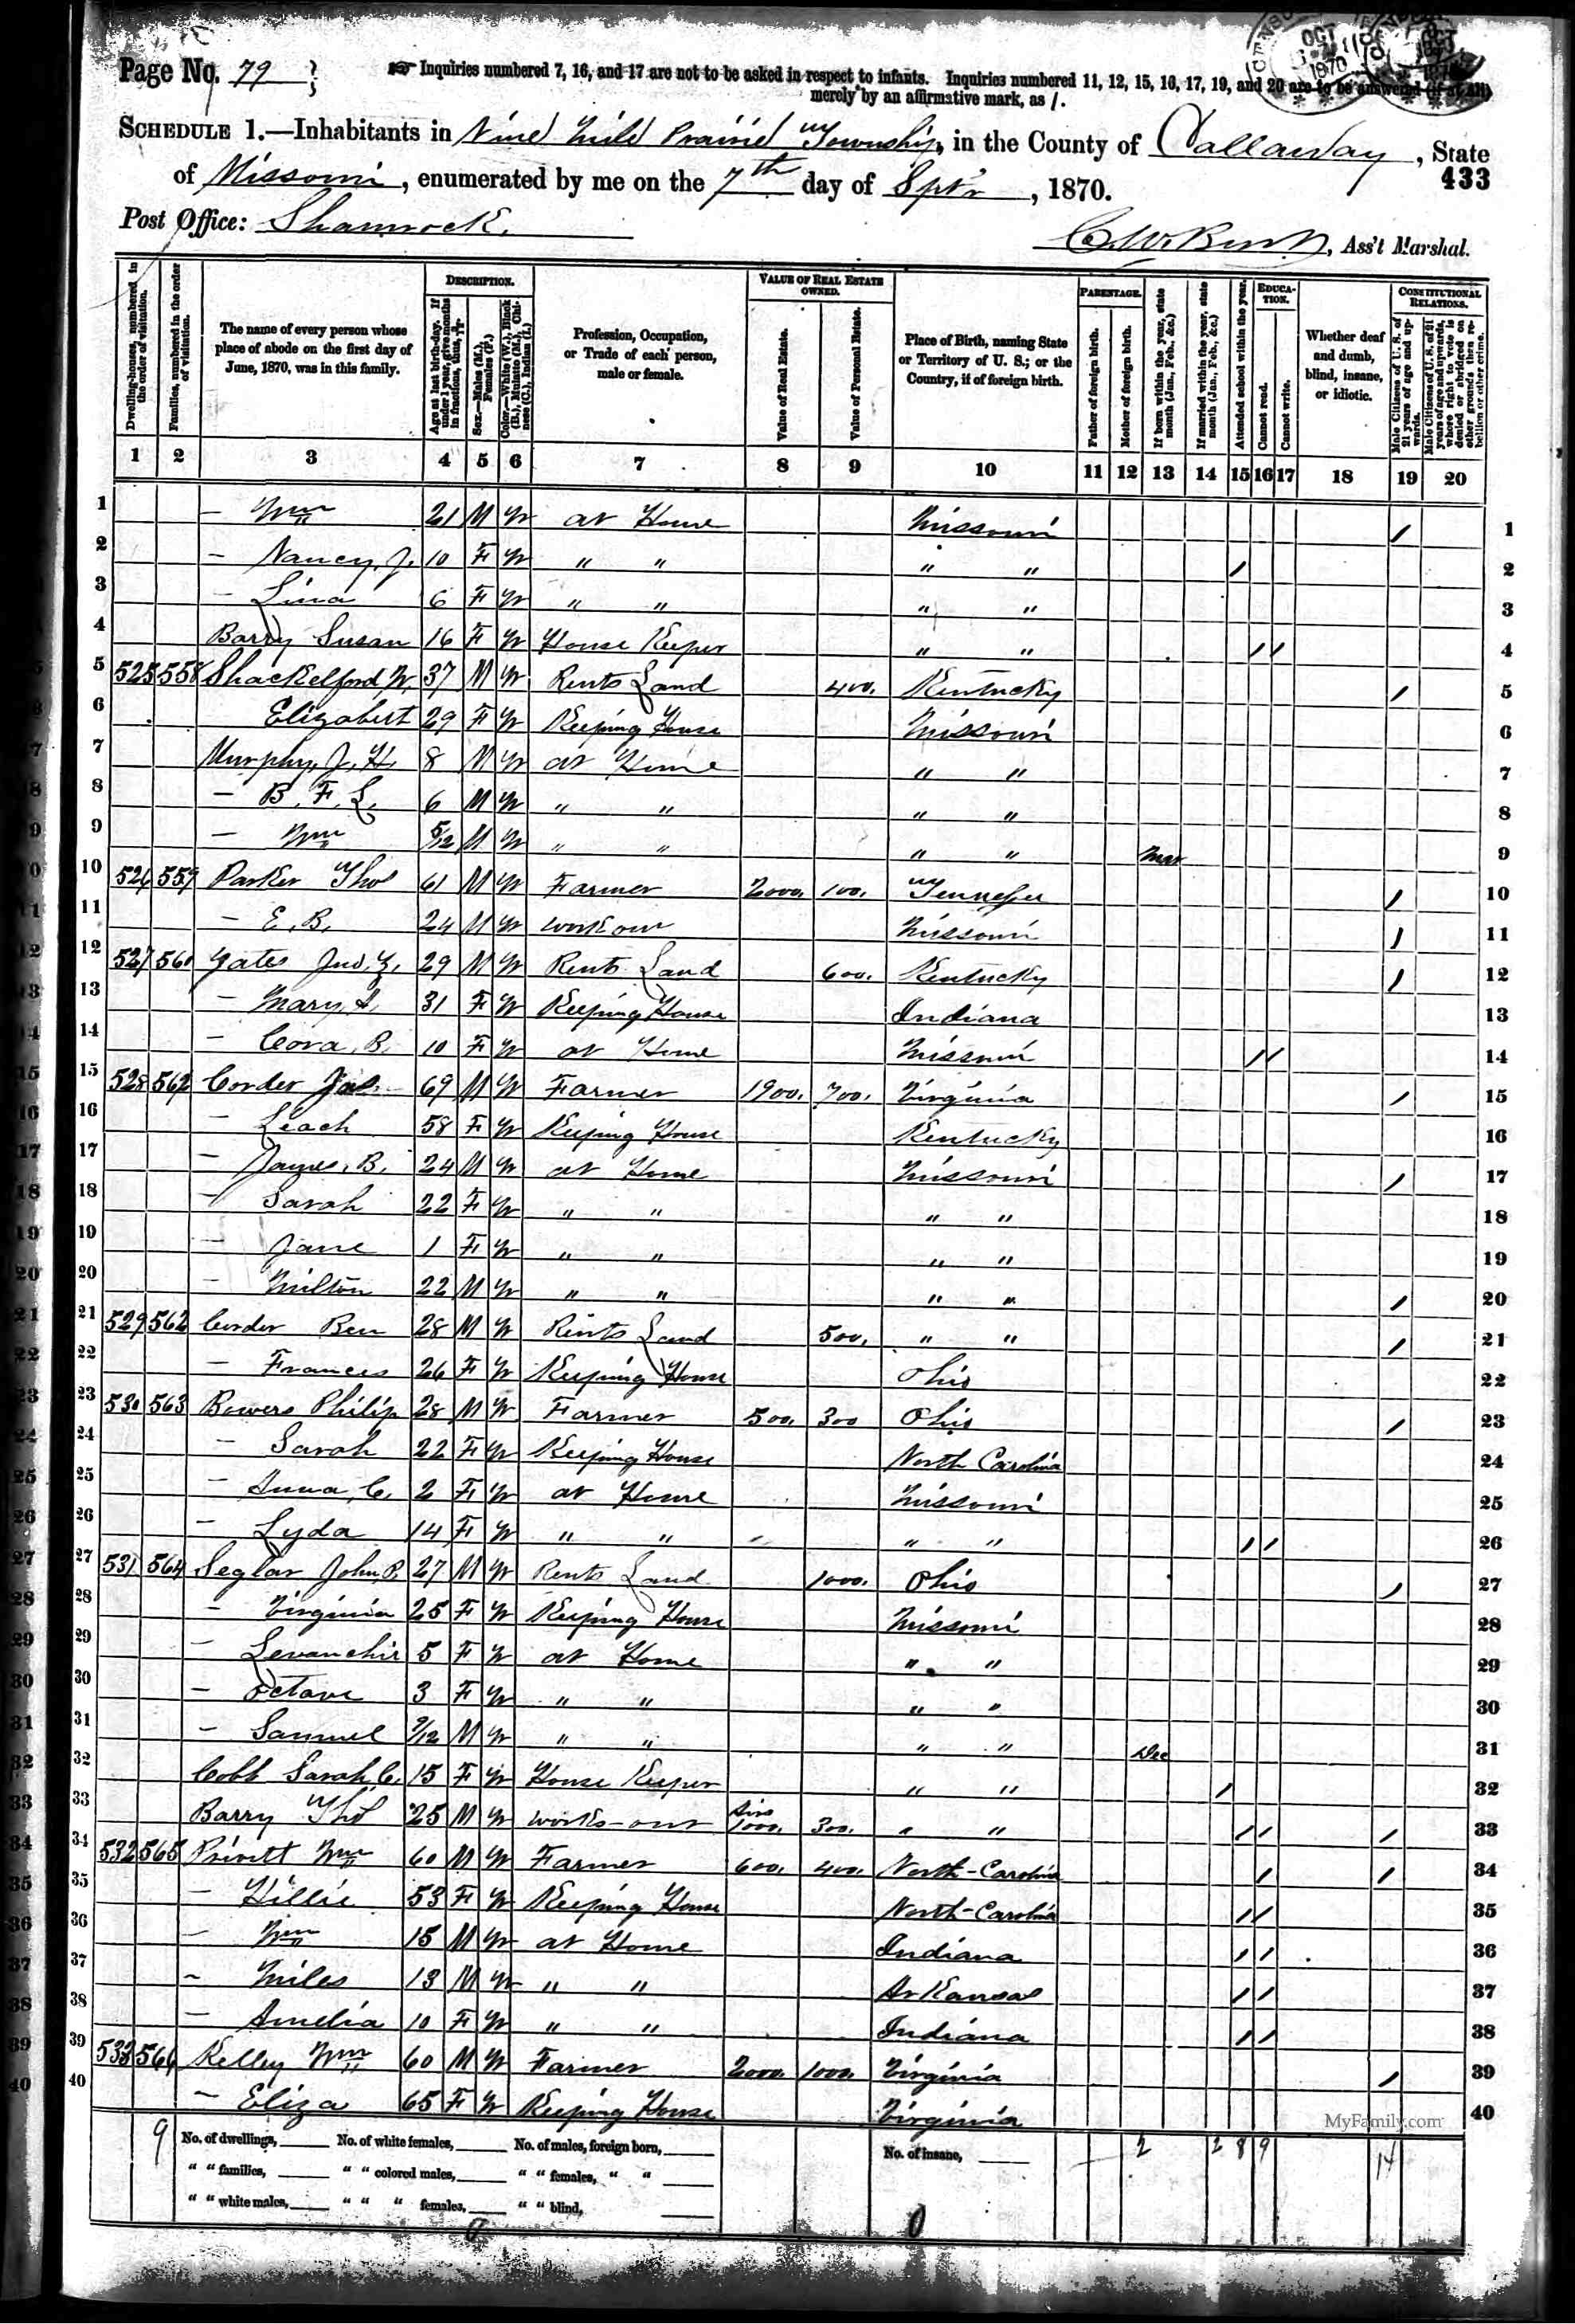 Page No. 79
☞ Inquiries numbered 7, 16, and 17 are not to be asked in respect to infants. Inquiries numbered 11, 12, 15, 16, 17, 19, and 20 are to be answered (if at all)
merely by an affirmative mark, as /.
OCT
1870
SCHEDULE 1.—Inhabitants in Nine Mile Prairie Township, in the County of Callaway, State
of Missouri, enumerated by me on the 7th day of Septr, 1870.
433
Post Office: Shamrock.
Ass't Marshal.
Dwelling-houses, numbered in the order of visitation.
Families, numbered in the order of visitation.
The name of every person whose place of abode on the first day of June, 1870, was in this family.
DESCRIPTION.
Age at last birth-day. If under 1 year, give months in fractions, thus,
Sex.—Males (M.), Females (F.)
Color.—White (W.), Black (B.), Mulatto (M.), Chinese (C.), Indian (I.)
Profession, Occupation, or Trade of each person, male or female.
VALUE OF REAL ESTATE OWNED.
Value of Real Estate.
Value of Personal Estate.
Place of Birth, naming State or Territory of U. S.; or the Country, if of foreign birth.
PARENTAGE.
Father of foreign birth.
Mother of foreign birth.
If born within the year, state month (Jan., Feb., &c.)
If married within the year, state month (Jan., Feb., &c.)
EDUCATION.
Attended school within the year.
Cannot read.
Cannot write.
Whether deaf and dumb, blind, insane, or idiotic.
CONSTITUTIONAL RELATIONS.
Male Citizens of U. S. of 21 years of age and upwards.
Male Citizens of U. S. of 21 years of age and upwards, where right to vote is denied or abridged on other grounds than rebellion or other crime.
1 2 3 4 5 6 7 8 9 10 11 12 13 14 15 16 17 18 19 20
1 — Wm 21 M W at Home Missouri / 1
2 — Nancy, J. 10 F W " " " " / 2
3 — Lina 6 F W " " " " 3
4 Barry Susan 16 F W House Keeper " " / / 4
5 525 558 Shackelford W. 37 M W Rents Land 400. Kentucky / 5
6 Elizabert 29 F W Keeping House Missouri 6
7 Murphy, J. H. 8 M W at Home " " 7
8 — B. F. L. 6 M W " " " " 8
9 — Wm 5/12 M W " " " " Mar 9
10 526 559 Parker Thos 61 M W Farmer 2000. 100. Tennessee / 10
11 — E. B. 24 M W work out Missouri / 11
12 527 560 Yates Jno. Z. 29 M W Rents Land 600. Kentucky / 12
13 — Mary, A. 31 F W Keeping House Indiana 13
14 — Cora, B. 10 F W at Home Missouri / / 14
15 528 562 Corder Jas. 69 M W Farmer 1900. 700. Virginia / 15
16 — Leach 58 F W Keeping House Kentucky 16
17 — James, B. 24 M W at Home Missouri / 17
18 — Sarah 22 F W " " " " 18
19 — Jane 1 F W " " " " 19
20 — Milton 22 M W " " " " / 20
21 529 562 Corder Ben 28 M W Rents Land 500. " " / 21
22 — Frances 26 F W Keeping House Ohio 22
23 530 563 Bowers Philip 28 M W Farmer 500. 300 Ohio / 23
24 — Sarah 22 F W Keeping House North Carolina 24
25 — Anna, C. 2 F W at Home Missouri 25
26 — Lyda 14 F W " " " " / / 26
27 531 564 Seglar John, P. 27 M W Rents Land 1000. Ohio / 27
28 — Virginia 25 F W Keeping House Missouri 28
29 — Levanchir 5 F W at Home " " 29
30 — Octave 3 F W " " " " 30
31 — Samuel 9/12 M W " " " " Dec 31
32 Cobb Sarah, C. 15 F W House Keeper " " / 32
33 Barry Tho 25 M W works-out 1000. 300. " " / / / 33
34 532 565 Privitt Wm 60 M W Farmer 600. 400. North-Carolina / / 34
35 — Hillie 53 F W Keeping House North-Carolina / / 35
36 — Wm 15 M W at Home Indiana / / 36
37 — Miles 13 M W " " Arkansas / / 37
38 — Amelia 10 F W " " Indiana / / 38
39 533 566 Kelley Wm 60 M W Farmer 2000. 1000. Virginia / 39
40 — Eliza 65 F W Keeping House Virginia 40
MyFamily.com
9 No. of dwellings, No. of white females, No. of males, foreign born, No. of insane, 2 2 8 9 14
" " families, " " colored males, " " females, " "
" " white males, " " " females, " " blind,
0 0